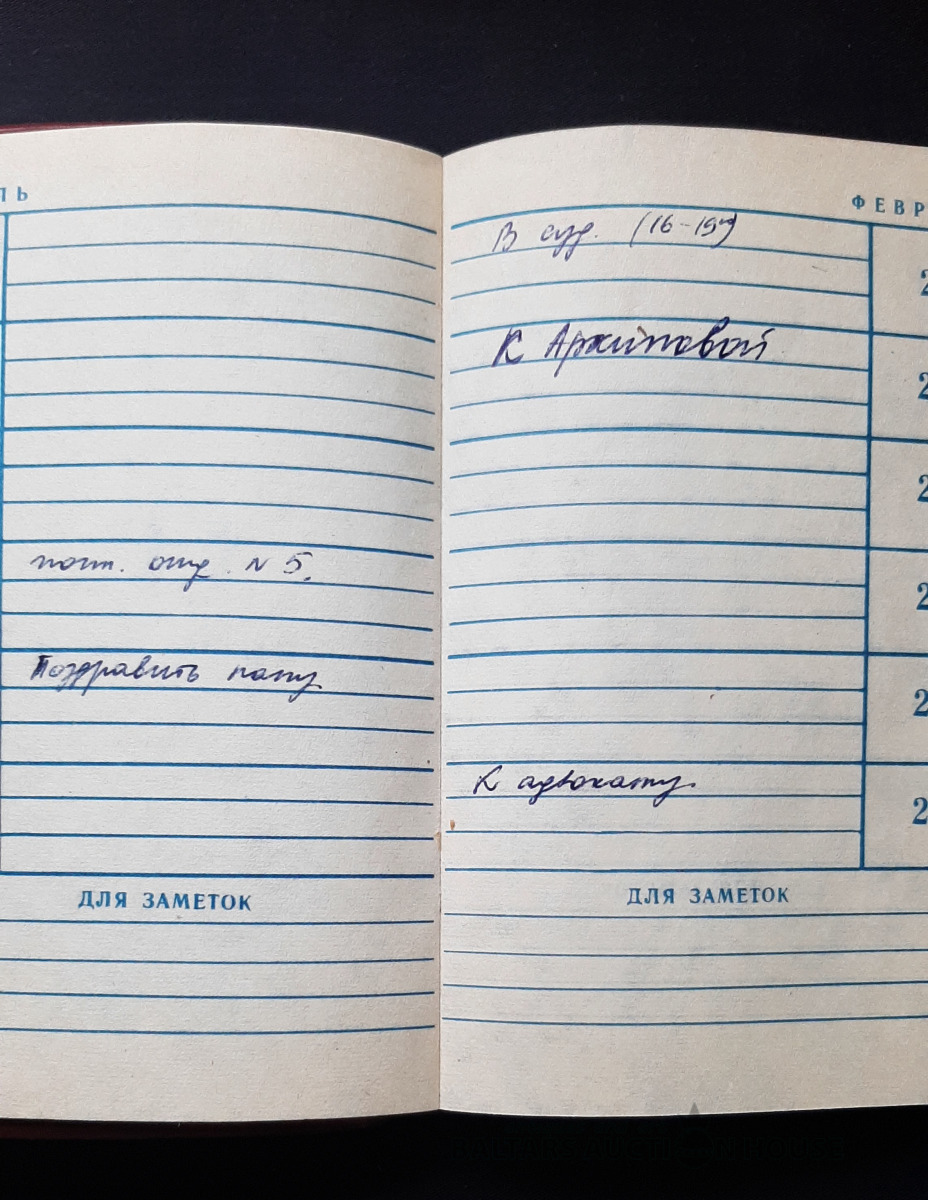 ЛЬ
почт. отд. N 5.
Поздравить папу
ДЛЯ ЗАМЕТОК
ФЕВР
В суд. (16-19
2
К Архиповой
2
2
2
2
К адвокату.
2
ДЛЯ ЗАМЕТОК
BALTARS AUCTION HOUSE